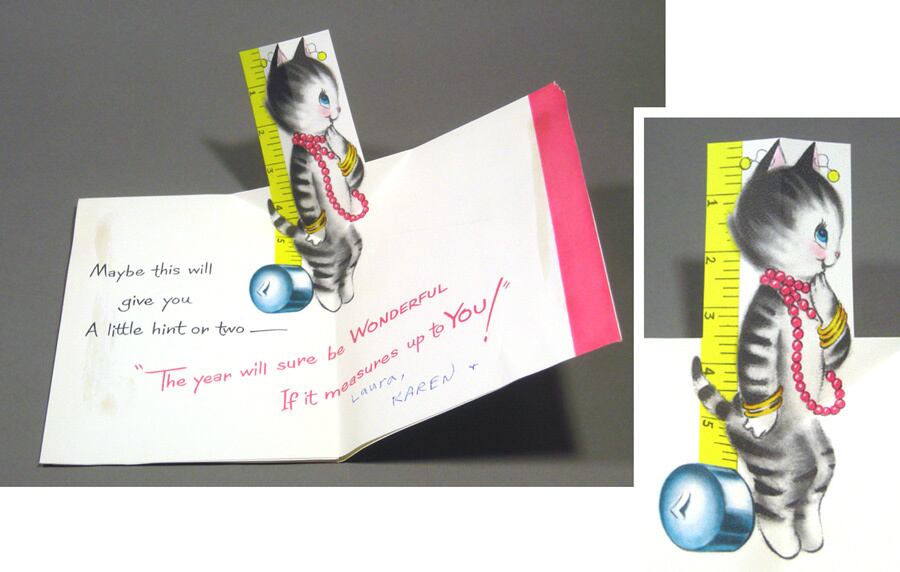 Maybe this will
give you
A little hint or two —
"The year will sure be WONDERFUL
If it measures up to YOU!"
Laura,
KAREN +
1
2
3
4
5
1
2
3
4
5